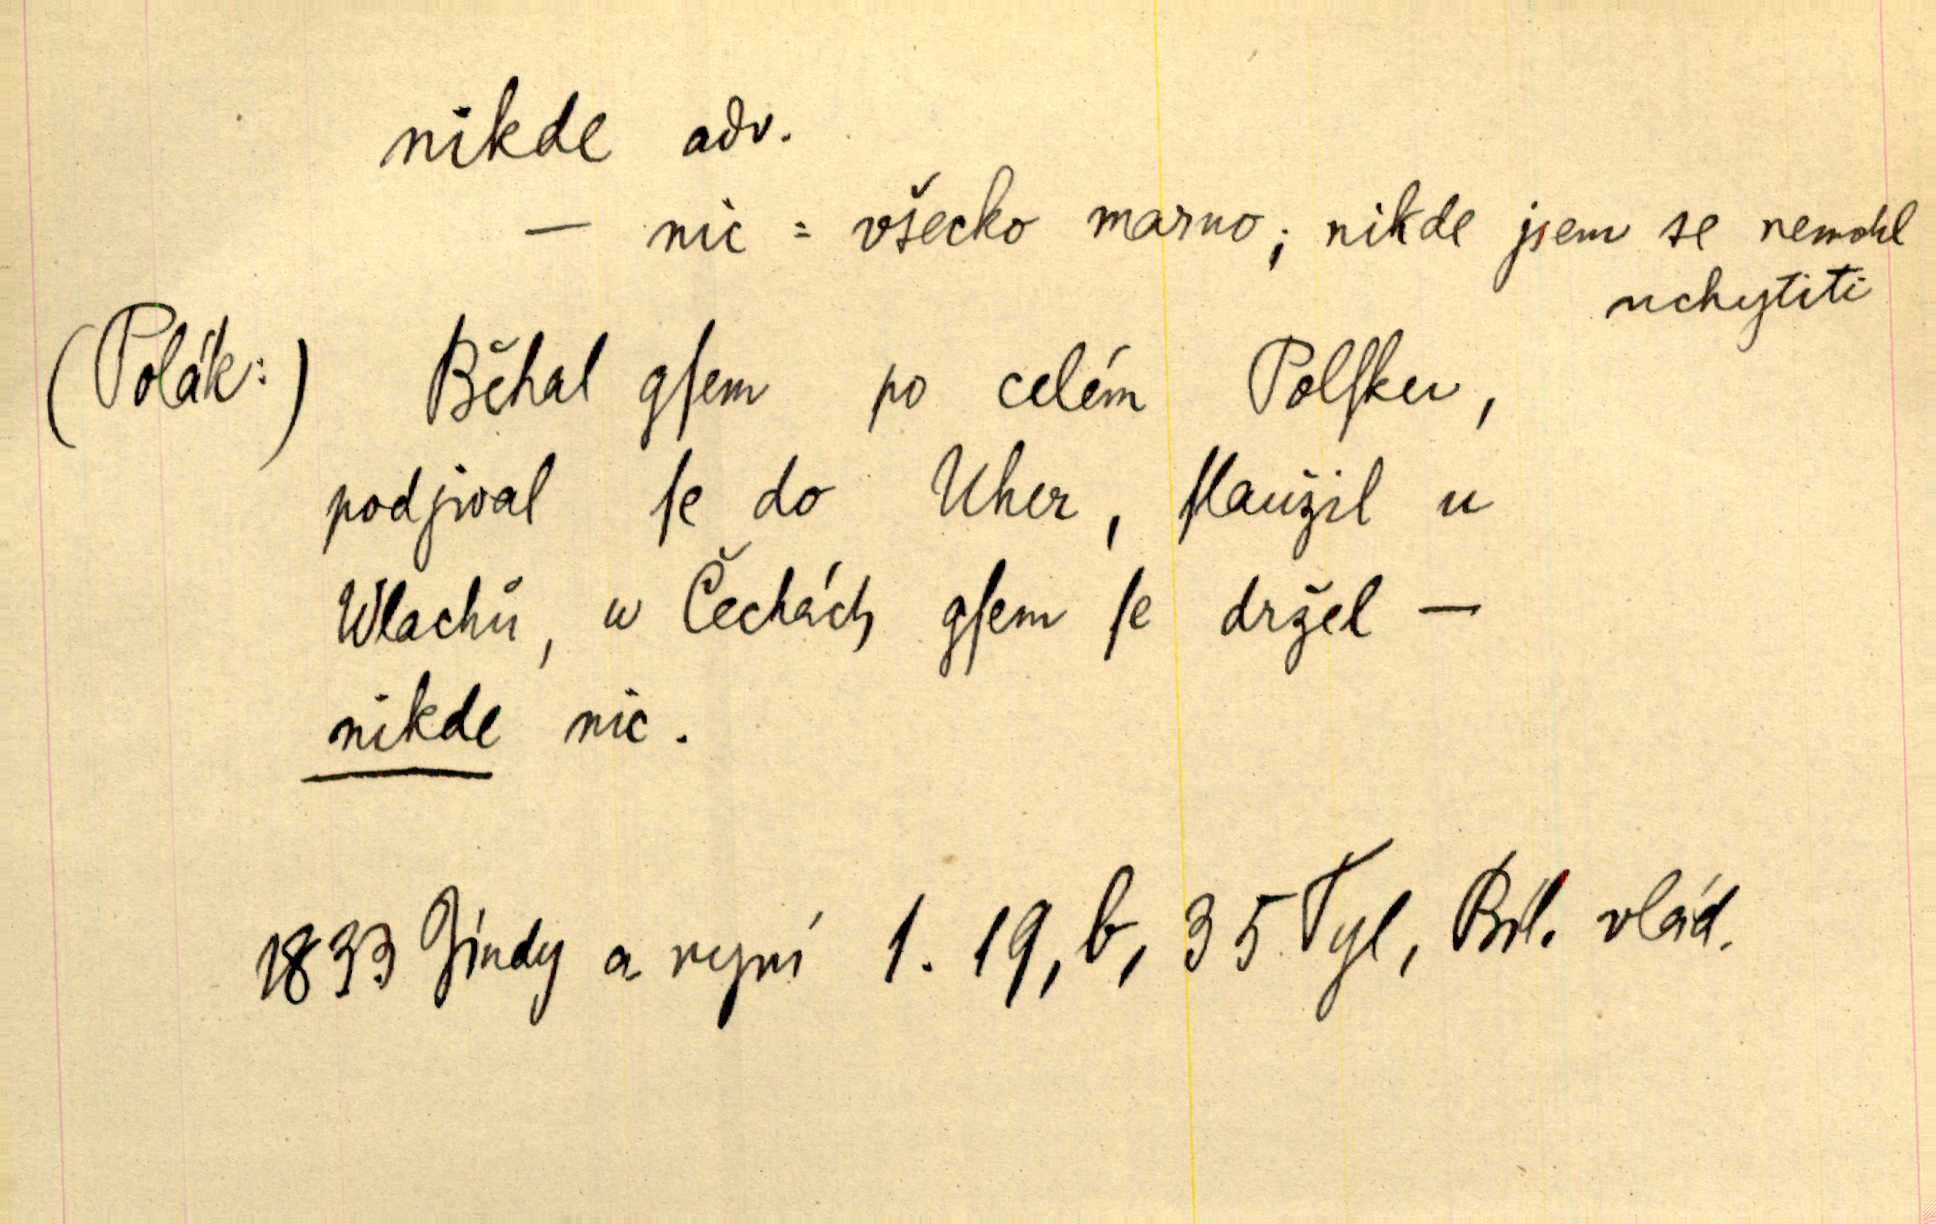 nikde adv.
— nic = všecko marno; nikde jsem se nemohl
uchytiti
(Polák:) Běhal gſem po celém Polſku,
podjwal ſe do Uher, ſlaužil u
Wlachů, w Čechách gſem ſe držel —
nikde nic.
1833 Jindy a nyní 1. 19, b, 35 Tyl, vlád.